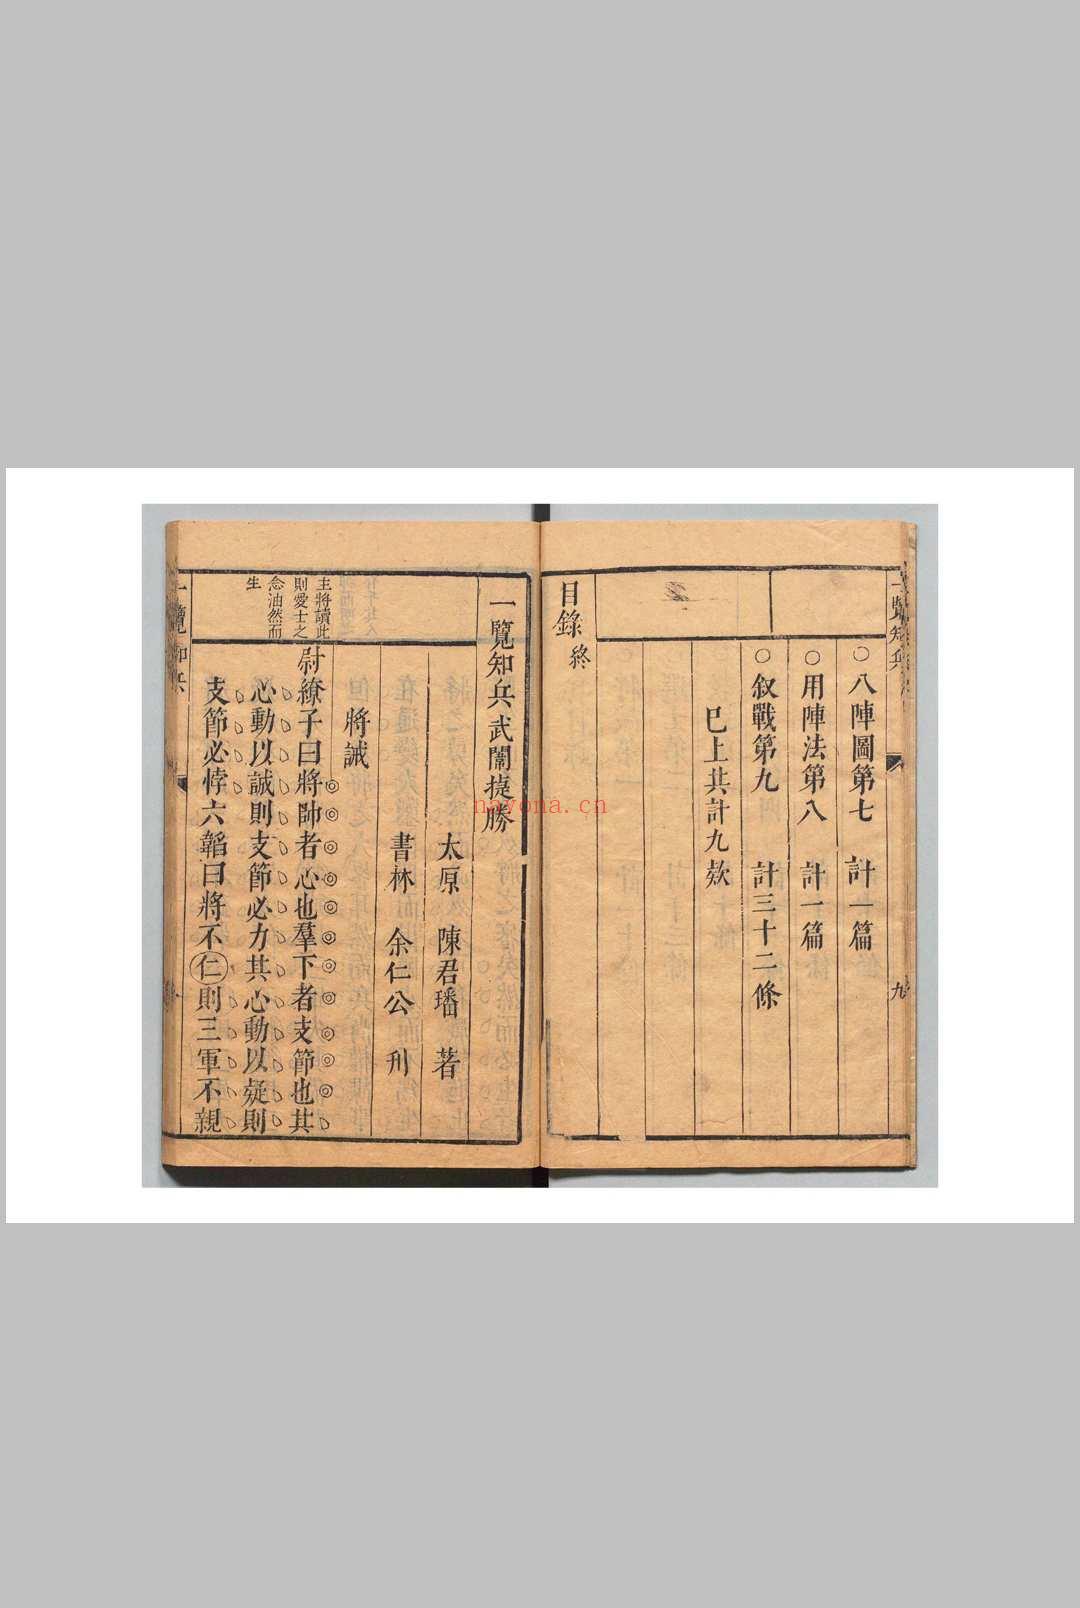 一覽知兵
九
○八陣圖第七 計一篇
○用陣法第八 計一篇
○叙戰第九 計三十二條
已上共計九欵
目錄終
一覽知兵武闈捷勝
太原 陳君璠 著
書林 余仁公 刋
將誠
主將讀此
則愛士之
念油然而
生
尉繚子曰將帥者心也羣下者支節也其
心動以誠則支節必力其心動以疑則
支節必悖六韜曰將不仁則三軍不親
一覽知兵
nayona.cn